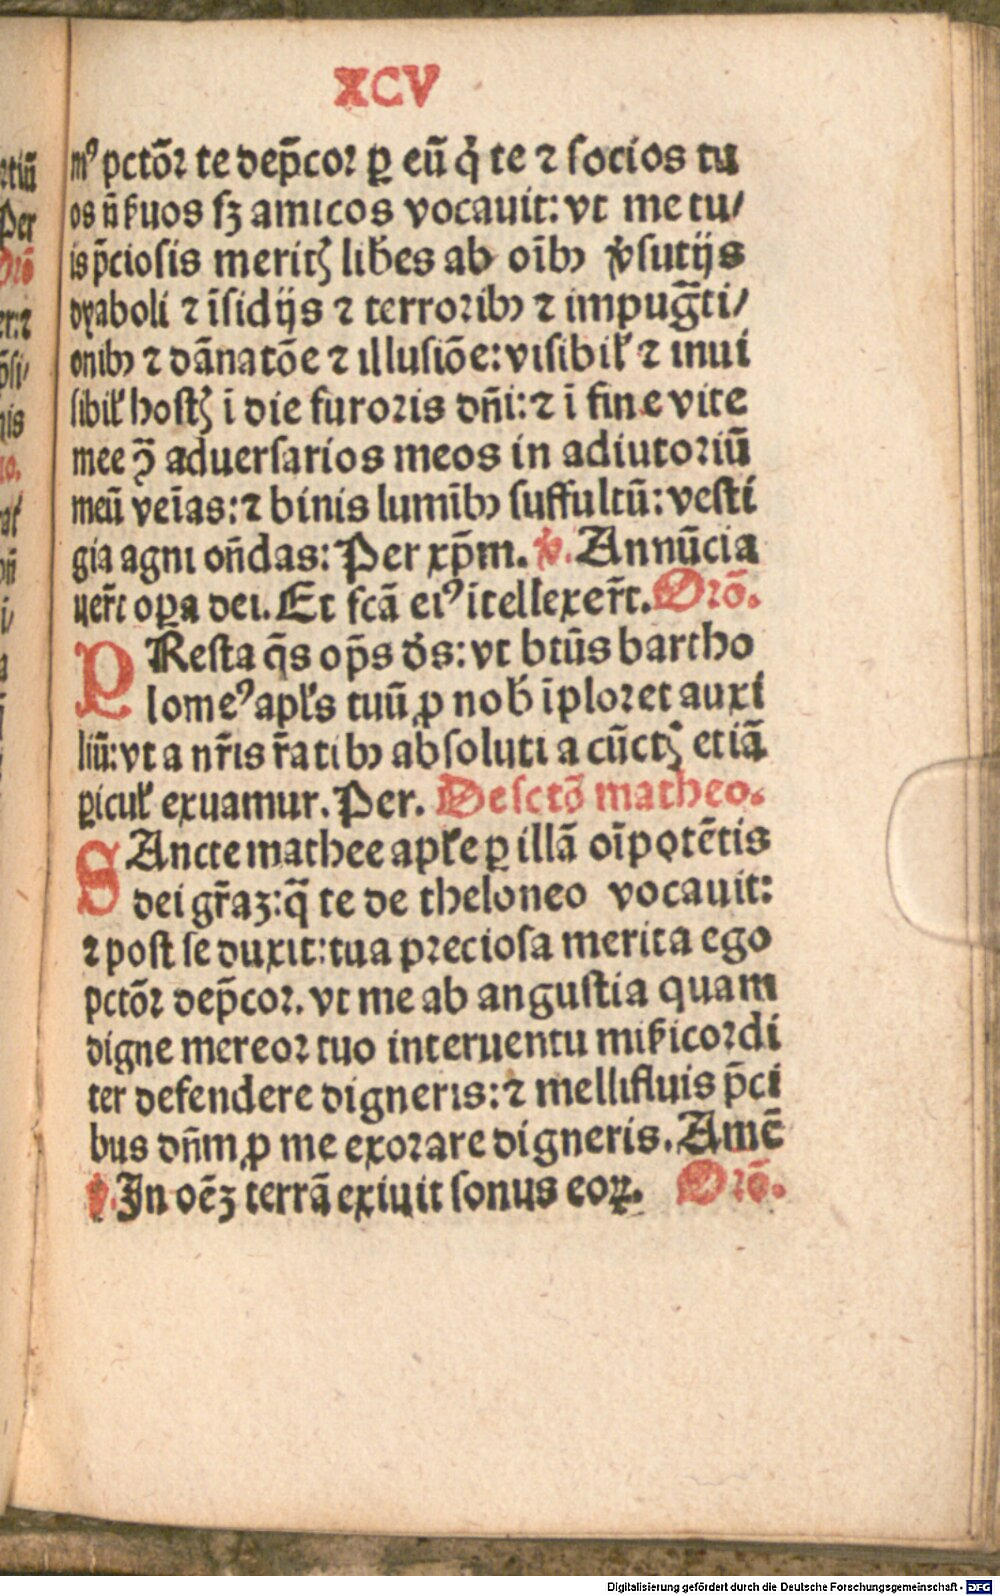 XCV
mꝰ pctõꝛ te dep̃coꝛ ꝑ eũ q̇ te ⁊ ſocios tu
os ñ ẜuos ſꝫ amicos vocauit: vt me tu/
is p̃ciosis meritꝭ lib̃es ab oĩbꝰ ṽſutijs
dyaboli ⁊ ĩſidijs ⁊ terroꝛibꝰ ⁊ impug̃ti/
onibꝰ ⁊ dãnatõe ⁊ illuſiõe: viſibiƚ ⁊ inui
ſibiƚ hoſtꝭ ĩ die furoꝛis dñi: ⁊ ĩ fine vite
mee ꝯ̃ aduerſarios meos in adiutoꝛiũ
meũ veĩas: ⁊ binis lumĩbꝰ ſuffultũ: veſti
gia agni oñdas: Per xp̃m. ℣. Annũcia
uer̃t oꝑa dei. Et fcã eiꝰ ĩtellexer̃t. Oꝛõ.
PReſta q̃s op̃s ds̃: vt btũs bartho
lomeꝰ apƚs tuũ ꝓ nob̃ ĩploꝛet auxi
liũ: vt a nr̃is r̃atibꝰ abſoluti a cũctꝭ etiã
ꝑicuƚ exuamur. Per. De ſctõ matheo.
SAncte mathee apƚe ꝑ illã oĩpotẽtis
dei gr̃aꝫ: q̃ te de theloneo vocauit:
⁊ poſt ſe duxit: tua pꝛecioſa merita ego
pctõꝛ dep̃coꝛ. vt me ab anguſtia quam
digne mereoꝛ tuo interuentu miẜicoꝛdi
ter defendere digneris: ⁊ mellifluis p̃ci
bus dñm ꝓ me exoꝛare digneris. Amẽ
℣. In oẽꝫ terrã exiuit ſonus eoꝝ. Oꝛõ.
Digitalisierung gefördert durch die Deutsche Forschungsgemeinschaft - DFG